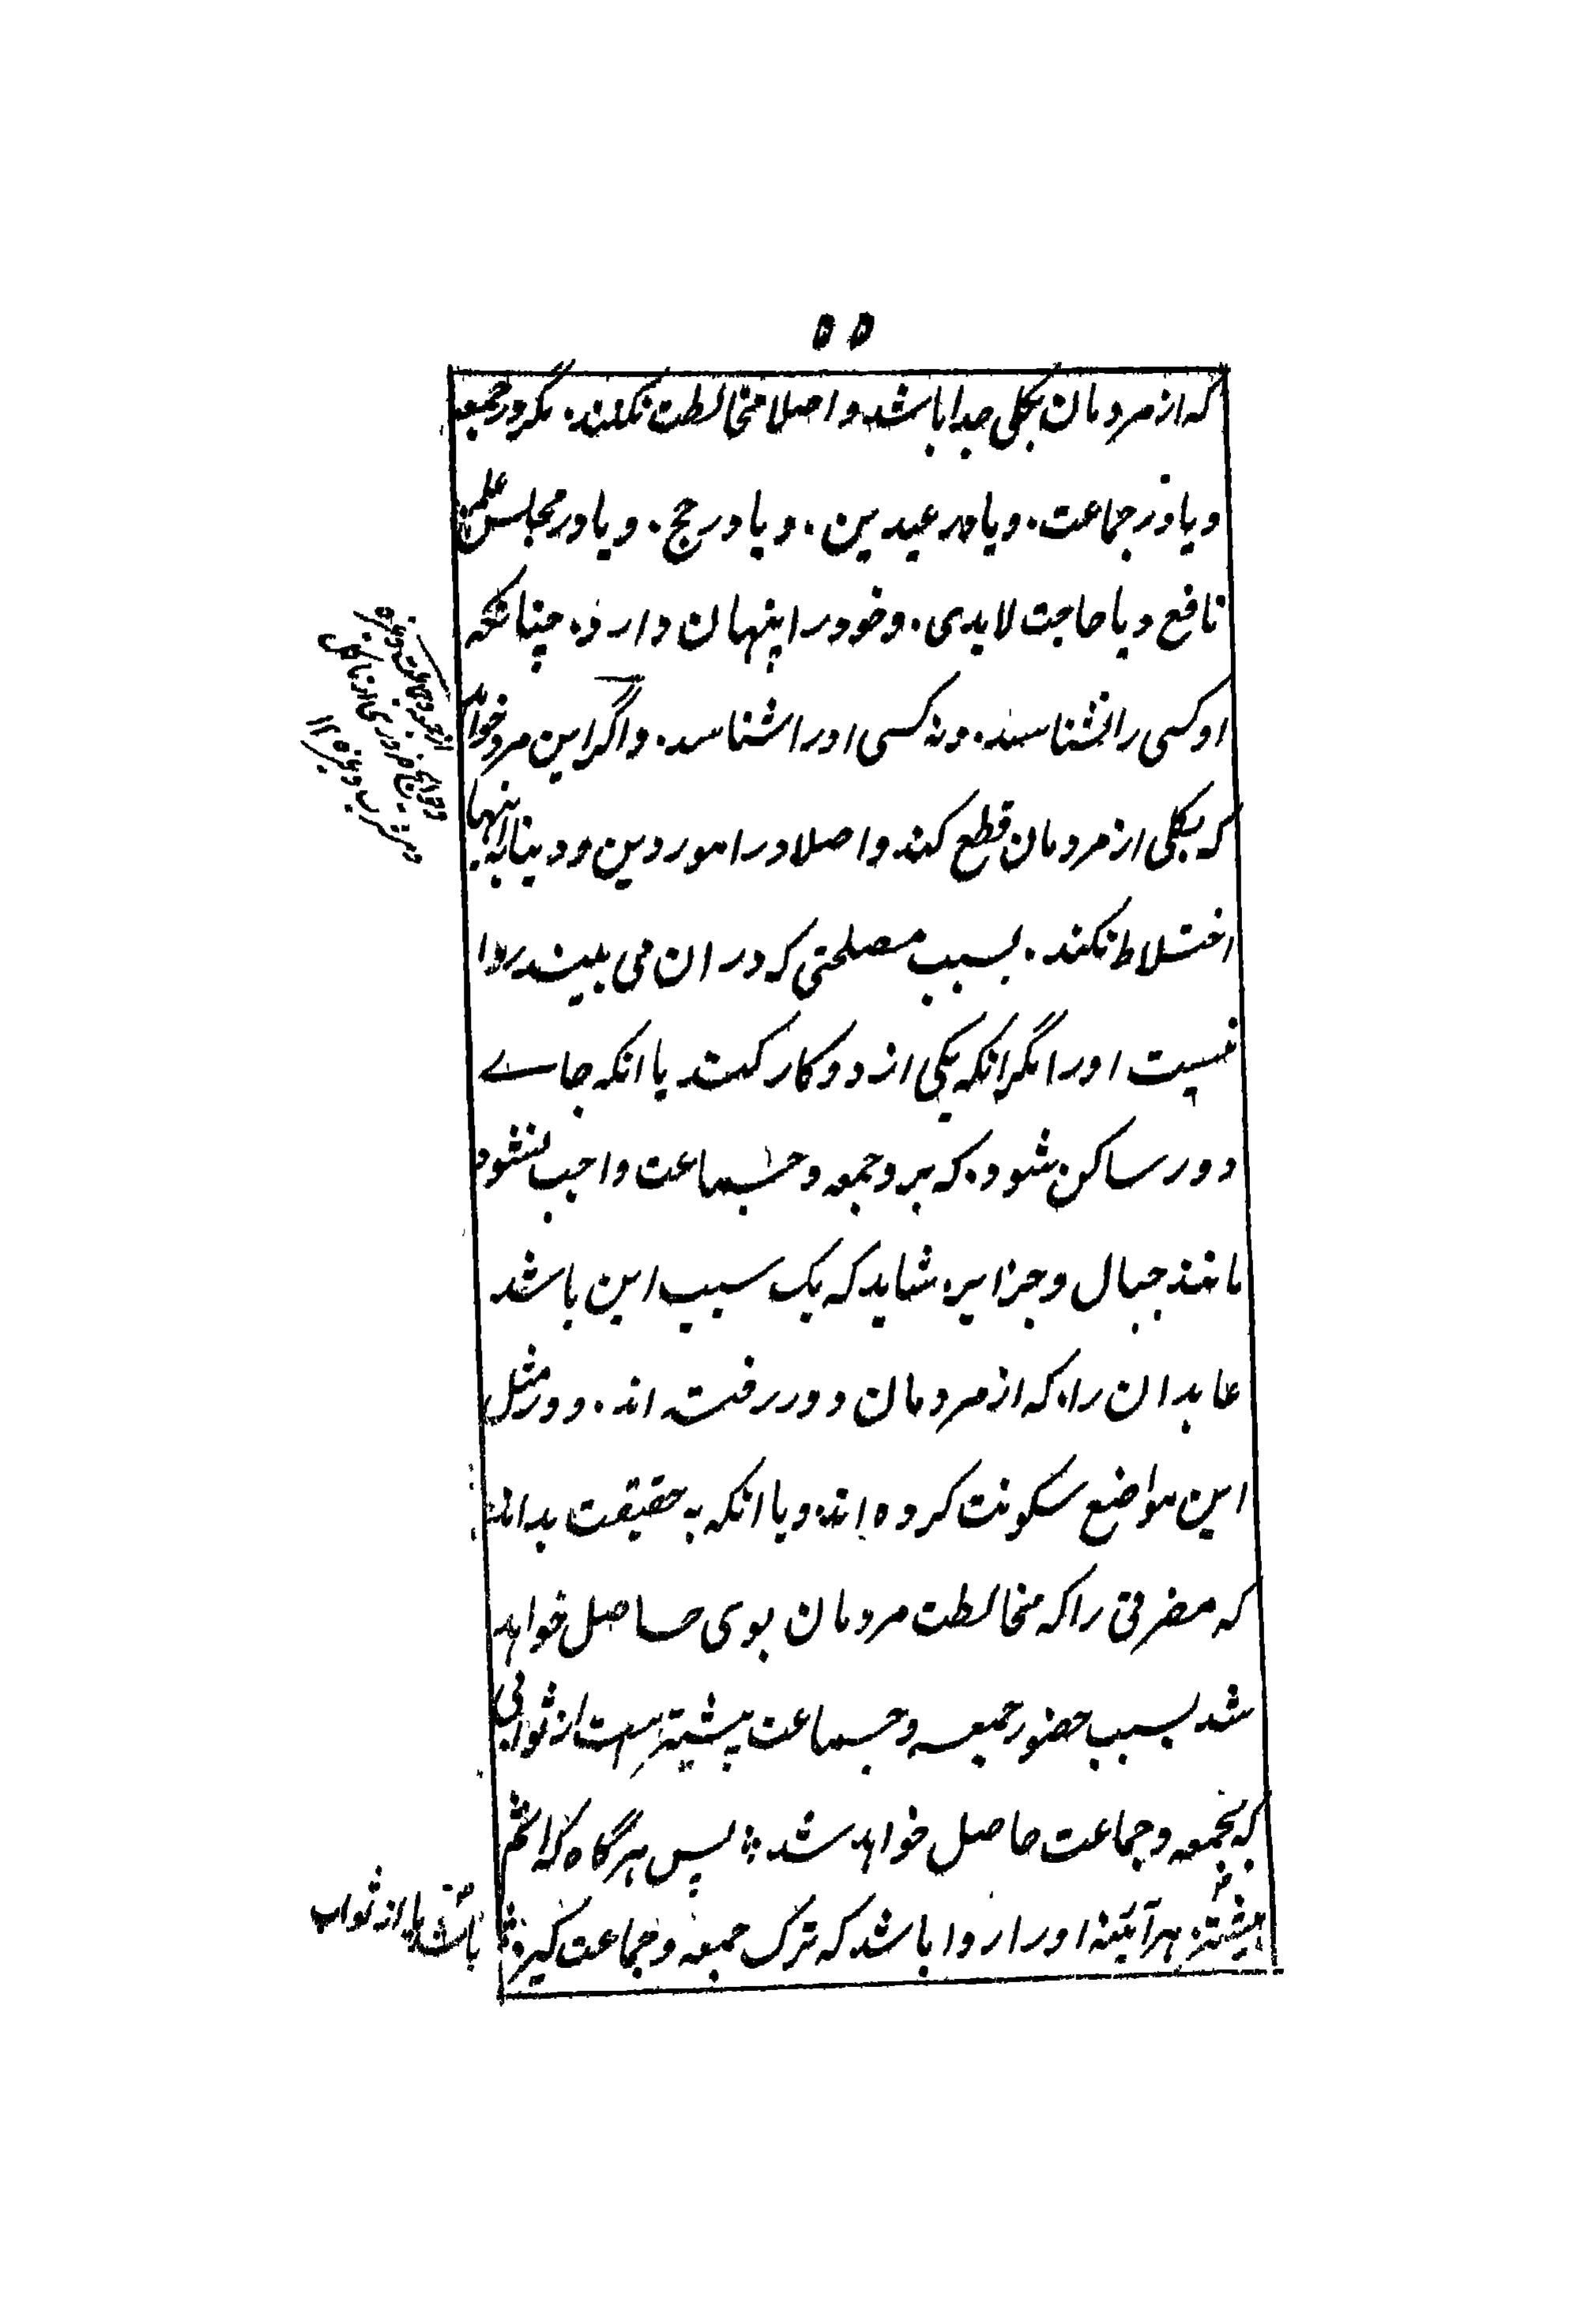 ۵۵
که از مردمان بکلی جدا باشد و اصلا مخالطت نکند. مگر در جمعه
و یا در جماعت. و یا در عیدین. و یا در حج. و یا در مجلس علمی
نافع و یا حاجت لابدی. و خود را پنهان دارد. چنانکه
او کسی را نشناسد. و نه کسی او را شناسد. و اگر این مرد خواهد
که بکلی از مردمان قطع کند و اصلا در امور دین و دنیا به اینها
اختلاط نکند. بسبب مصلحتی که در ان می بیند روا
نیست او را مگر انکه یکی از دو کار کند یا انکه جاے
دور ساکن شود. که برو جمعه و جماعت واجب نشود
مانند جبال و جزایر. شاید که یک سبب این باشد
عابدان را. که از مردمان دور رفته اند. و در مثل
این مواضع سکونت کرده اند. و یا انکه به حقیقت بداند
که مضرتی را که مخالطت مردمان بوی حاصل خواهد
شد بسبب حضور جمعه و جماعت بیشترست از ثوابی
که بجمعه و جماعت حاصل خواهد شد ٭ پس هرگاه که اثم
بیشتر. هر آئینه او را روا باشد که ترک جمعه و جماعت گیرد
باشد از ثواب